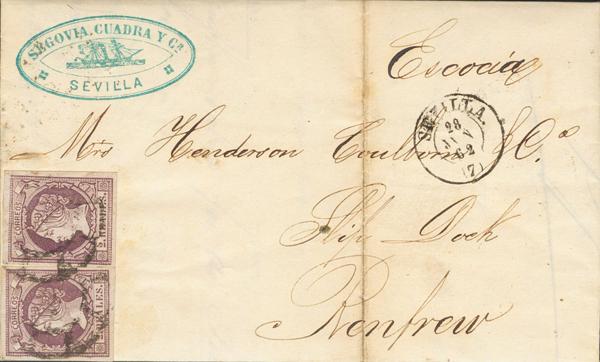 SEGOVIA, CUADRA Y Cª
SEVILLA
Escocia
SEVILLA.
28
62
(7)
Henderson Coulborn & Co
Slip Dock
Renfrew
CORREOS.
2. REALES.
CORREOS.
ALES.